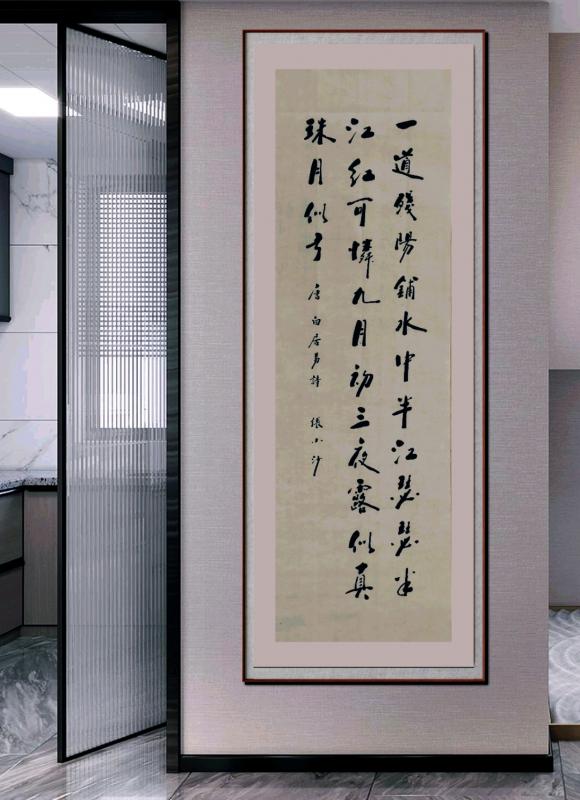 一道殘陽鋪水中半江瑟瑟半
江紅可憐九月初三夜露似真
珠月似弓
唐白居易詩 張小沙